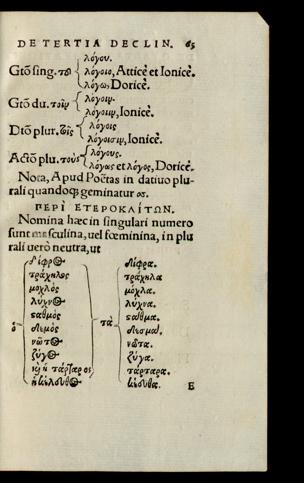 DE TERTIA DECLIN. 65
λόγου.
Gtõ sing. τοῦ λόγοιο, Atticè et Ionicè.
λόγω, Doricè.
Gtõ du. τοῖν λόγοιν.
λόγοιιν, Ionicè.
Dtõ plur. τοῖς λόγοις
λόγοισιν, Ionicè.
Actõ plu. τοὺς λόγους.
λόγως et λόγος, Doricè.
Nota, Apud Poëtas in datiuo plu-
rali quandoq; geminatur σσ.
ΠΕΡῚ ΕΤΕΡΟΚΛΊΤΩΝ.
Nomina hæc in singulari numero
sunt masculina, uel fœminina, in plu
rali uerò neutra, ut
δίφρος δίφρα.
τράχηλος τράχηλα
μοχλὸς μόχλα.
λύχνος λύχνα.
ὁ σαθμὸς τὰ σαθμα.
δεσμὸς δεσμα.
νῶτος νῶτα.
ζύγος ζύγα.
καὶ ἡ τάρταρος τάρταρα.
ἡ κέλευθος κέλευθα. E